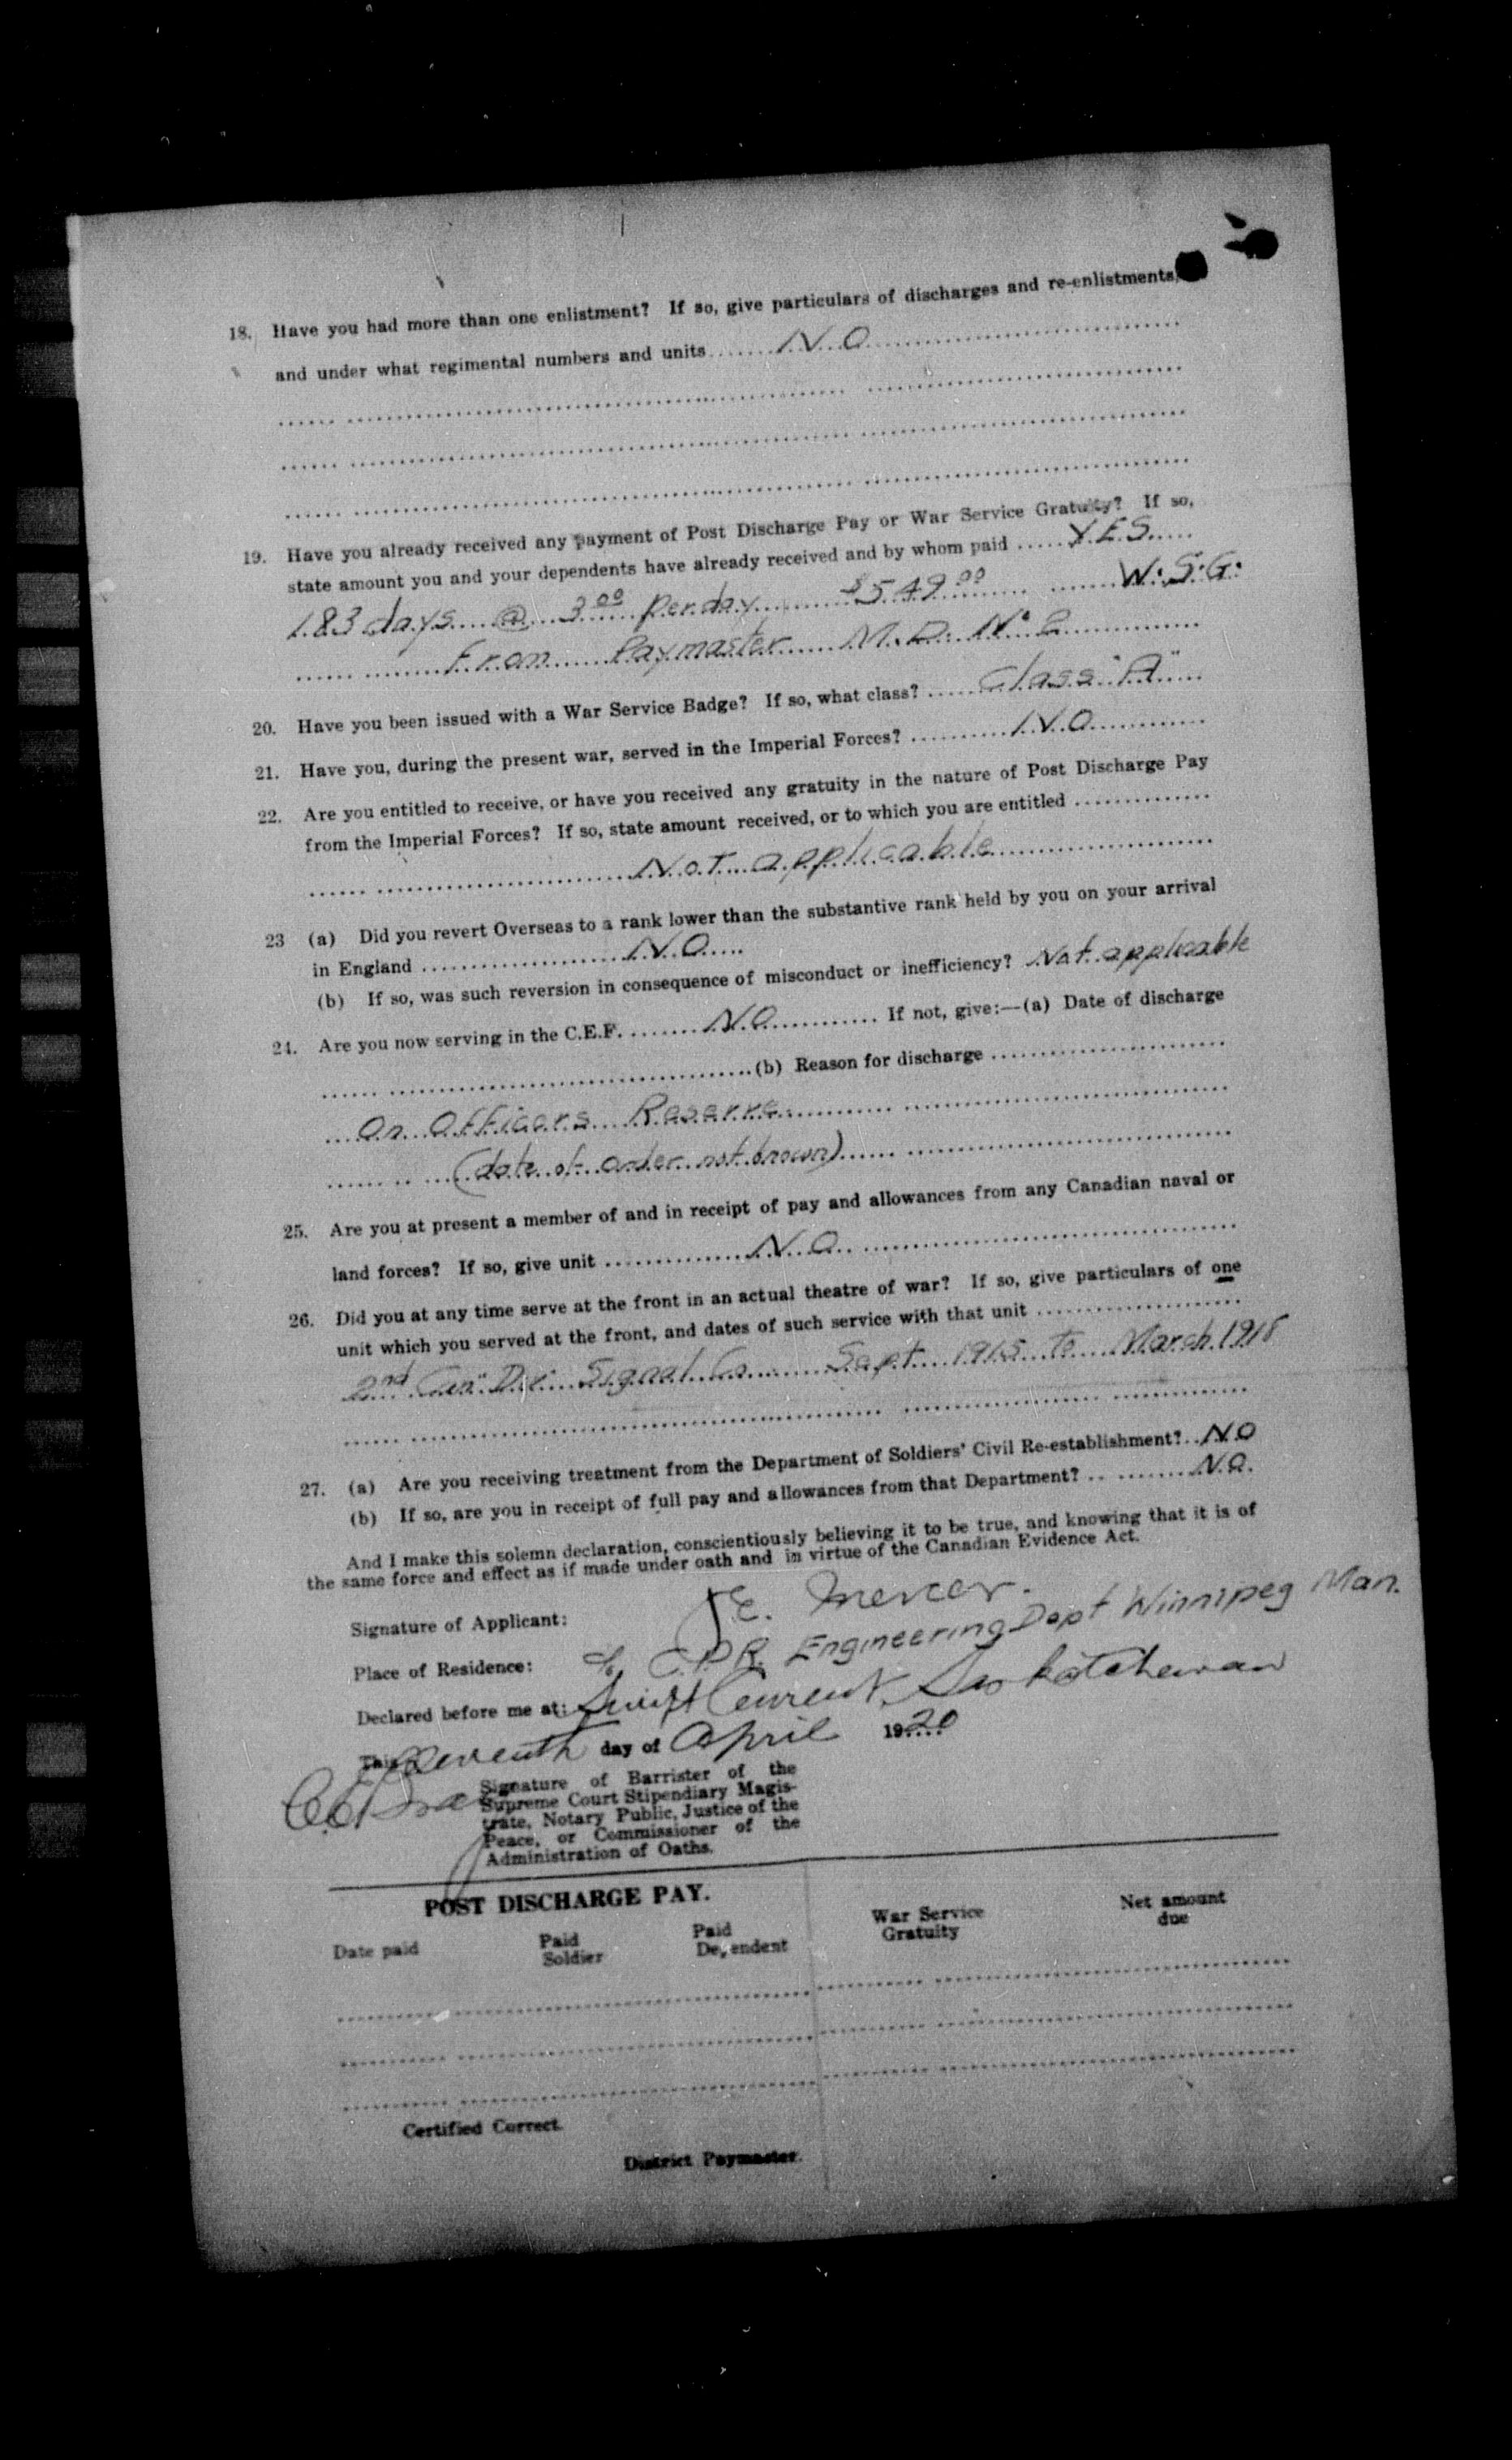 18. Have you had more than one enlistment? If so, give particulars of discharges and re-enlistments,
and under what regimental numbers and units NO
19. Have you already received any payment of Post Discharge Pay or War Service Gratuity? If so,
state amount you and your dependents have already received and by whom paid YES
183 days @ 3 00 per day $549 00 W.S.G.
From Paymaster M.D. No 2
20. Have you been issued with a War Service Badge? If so, what class? Class "A"
21. Have you, during the present war, served in the Imperial Forces? NO
22. Are you entitled to receive, or have you received any gratuity in the nature of Post Discharge Pay
from the Imperial Forces? If so, state amount received, or to which you are entitled
Not applicable
23 (a) Did you revert Overseas to a rank lower than the substantive rank held by you on your arrival
in England NO
(b) If so, was such reversion in consequence of misconduct or inefficiency? Not applicable
24. Are you now serving in the C.E.F. NO If not, give:—(a) Date of discharge
(b) Reason for discharge
On Officers Reserve
(date of order not known)
25. Are you at present a member of and in receipt of pay and allowances from any Canadian naval or
land forces? If so, give unit NO
26. Did you at any time serve at the front in an actual theatre of war? If so, give particulars of one
unit which you served at the front, and dates of such service with that unit
2nd Can Div Signal Co Sept 1915 to March 1918
27. (a) Are you receiving treatment from the Department of Soldiers' Civil Re-establishment? NO
(b) If so, are you in receipt of full pay and allowances from that Department? NO.
And I make this solemn declaration, conscientiously believing it to be true, and knowing that it is of
the same force and effect as if made under oath and in virtue of the Canadian Evidence Act.
Signature of Applicant: J E. Mercer.
Place of Residence: C.P.R. Engineering Dept Winnipeg Man.
Declared before me at: Swift Current, Saskatchewan
This day of April 1920
Signature of Barrister of the
Supreme Court Stipendiary Magis-
trate, Notary Public, Justice of the
Peace, or Commissioner of the
Administration of Oaths.
POST DISCHARGE PAY.
Date paid Paid Soldier Paid Dependent War Service Gratuity Net amount due
Certified Correct.
District Paymaster.